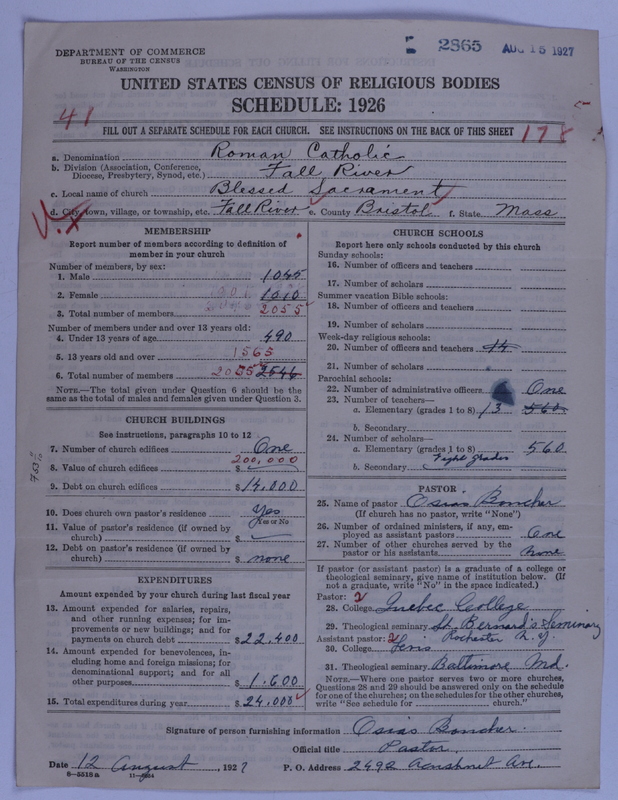 2865 AUG 15 1927
DEPARTMENT OF COMMERCE
BUREAU OF THE CENSUS
WASHINGTON
UNITED STATES CENSUS OF RELIGIOUS BODIES
SCHEDULE: 1926
41
FILL OUT A SEPARATE SCHEDULE FOR EACH CHURCH. SEE INSTRUCTIONS ON THE BACK OF THIS SHEET 178
a. Denomination Roman Catholic
b. Division (Association, Conference, Diocese, Presbytery, Synod, etc.) Fall River
c. Local name of church Blessed Sacrament
d. City, town, village, or township, etc. Fall River e. County Bristol f. State Mass
MEMBERSHIP
Report number of members according to definition of
member in your church
Number of members, by sex:
1. Male 1045
2. Female 1010
3. Total number of members 2055
Number of members under and over 13 years old:
4. Under 13 years of age 490
5. 13 years old and over 1565
6. Total number of members 2055 2546
NOTE.—The total given under Question 6 should be
same as the total of males and females given under Question 3.
CHURCH BUILDINGS
See instructions, paragraphs 10 to 12
7. Number of church edifices One
8. Value of church edifices $ 200,000
9. Debt on church edifices $ 14,000
10. Does church own pastor's residence Yes
Yes or No
11. Value of pastor's residence (if owned by
church) $
12. Debt on pastor's residence (if owned by
church) $ none
EXPENDITURES
Amount expended by your church during last fiscal year
13. Amount expended for salaries, repairs,
and other running expenses; for im-
provements or new buildings; and for
payments on church debt $ 22,400
14. Amount expended for benevolences, in-
cluding home and foreign missions; for
denominational support; and for all
other purposes $ 1,600
15. Total expenditures during year $ 24,000
CHURCH SCHOOLS
Report here only schools conducted by this church
Sunday schools:
16. Number of officers and teachers
17. Number of scholars
Summer vacation Bible schools:
18. Number of officers and teachers
19. Number of scholars
Week-day religious schools:
20. Number of officers and teachers 14
21. Number of scholars
Parochial schools:
22. Number of administrative officers One
23. Number of teachers—
a. Elementary (grades 1 to 8) 13 560
b. Secondary
24. Number of scholars—
a. Elementary (grades 1 to 8) 560
b. Secondary Eight grades
PASTOR
25. Name of pastor Osias Boucher
(If church has no pastor, write "None")
26. Number of ordained ministers, if any, em-
ployed as assistant pastors One
27. Number of other churches served by the
pastor or his assistants None
If pastor (or assistant pastor) is a graduate of a college or
theological seminary, give name of institution below. (If
not a graduate, write "No" in the space indicated.)
Pastor: 2
28. College Quebec College
29. Theological seminary St. Bernard's Seminary
Assistant pastor: 2 Rochester N.Y.
30. College
31. Theological seminary Baltimore Md.
NOTE.—Where one pastor serves two or more churches,
Questions 28 and 29 should be answered only on the schedule
for one of the churches; on the schedules for the other churches,
write "See schedule for church."
Signature of person furnishing information Osias Boucher
Official title Pastor
Date 12 August, 1927 P. O. Address 2492 Acushnet Ave.
6—5515 a 11—9524